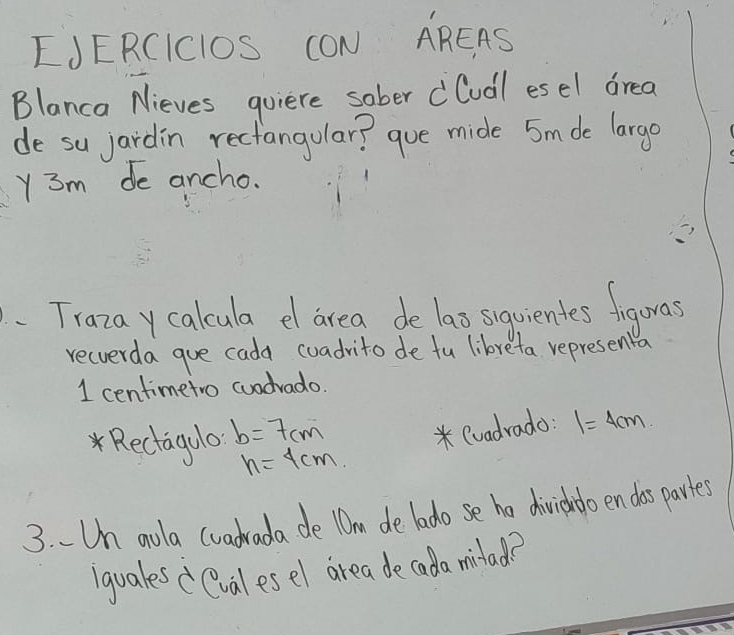 EJERCICIOS CON ÁREAS
Blanca Nieves quiere saber ¿Cuál es el área
de su jardín rectangular? que mide 5m de largo
y 3m de ancho.
.- Traza y calcula el área de las siguientes figuras
recuerda que cada cuadrito de tu libreta representa
1 centimetro cuadrado.
* Rectágulo: b= 7cm * Cuadrado: l= 4cm.
h= 4cm.
3.- Un aula cuadrada de 10m de lado se ha dividido en dos partes
iguales ¿Cuál es el área de cada mitad?